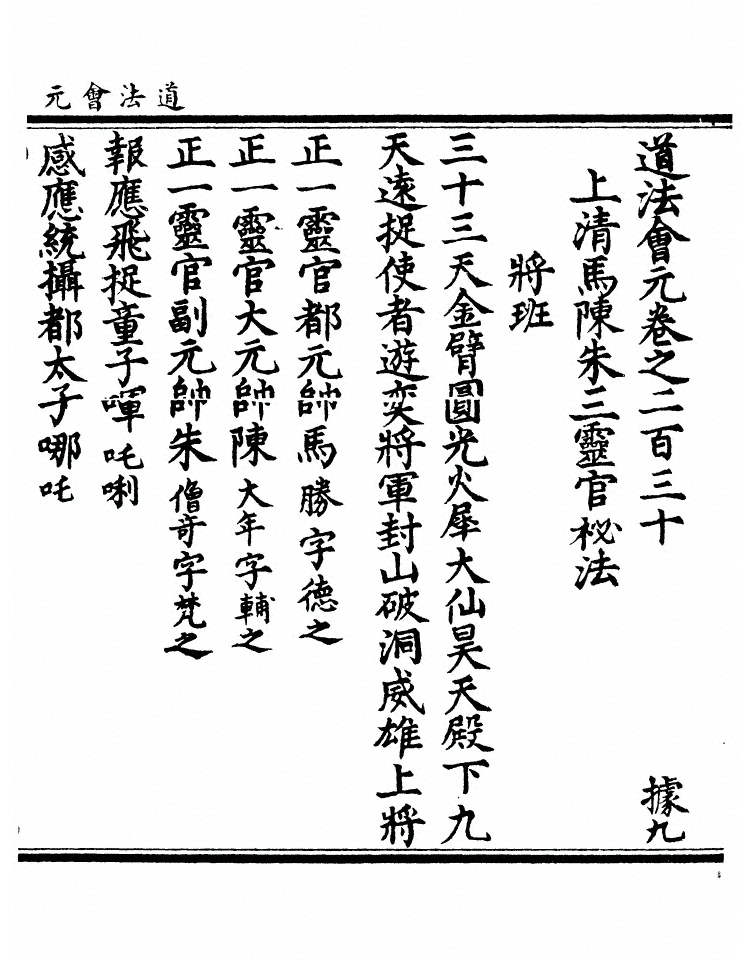 道法會元
道法會元卷之二百三十 據九
上清馬陳朱三靈官秘法
將班
三十三天金臂圓光火犀大仙昊天殿下九
天速捉使者遊奕將軍封山破洞威雄上將
正一靈官都元帥馬勝字德之
正一靈官大元帥陳大年字輔之
正一靈官副元帥朱僧奇字梵之
報應飛捉童子㖷吒唎
感應統攝都太子哪吒